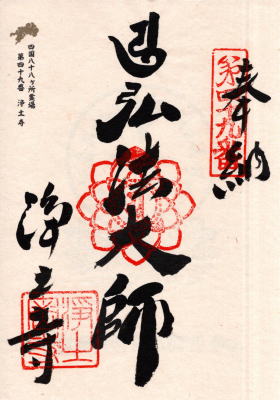 奉納
第四十九番
弘法大師
浄土寺
浄土寺
四国八十八ヶ所霊場
第四十九番 浄土寺